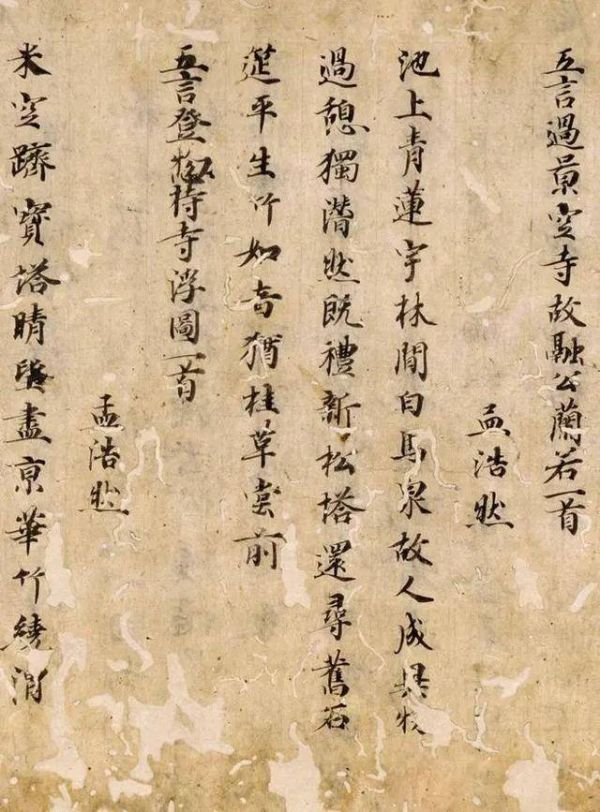 五言過景空寺故融公蘭若一首
孟浩然
池上青蓮宇林間白馬泉故人成異物
過憩獨潸然既禮新松塔還尋舊石
筵平生竹如意猶挂草堂前
五言登惣持寺浮圖一首
孟浩然
半空躋寶塔晴望盡京華竹繞渭